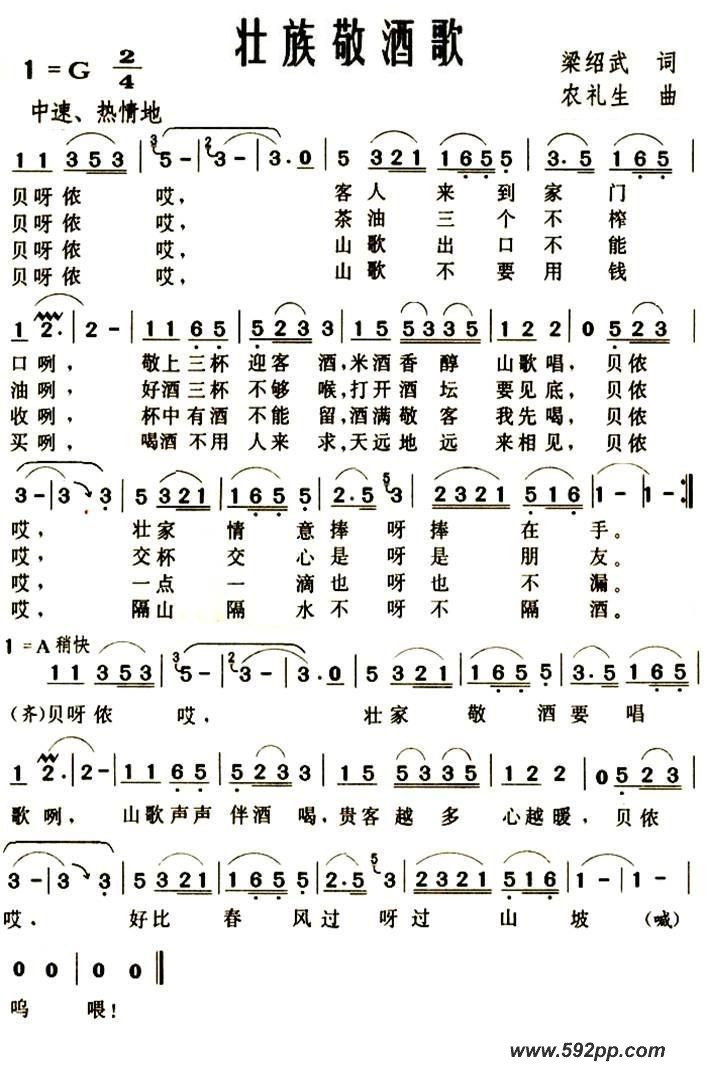 壮族敬酒歌
1=G 2/4
梁绍武 词
中速、热情地
农礼生 曲
1 1 3 5 3 | 3 5 - | 2 3 - | 3. 0 | 5 3 2 1 | 1 6 5 5 | 3. 5 | 1 6 5 |
贝呀侬 哎, 客人 来到家门
贝呀侬 哎, 茶油 三个不榨
贝呀侬 哎, 山歌 出口不能
贝呀侬 哎, 山歌 不要用钱
1 2. | 2 - | 1 1 6 5 | 5 2 3 3 | 1 5 5 3 3 5 | 1 2 2 | 0 5 2 3 |
口咧, 敬上三杯 迎客 酒,米酒香醇 山歌唱, 贝侬
油咧, 好酒三杯 不够 喉,打开酒坛 要见底, 贝侬
收咧, 杯中有酒 不能 留,酒满敬客 我先喝, 贝侬
买咧, 喝酒不用 人来 求,天远地远 来相见, 贝侬
3 - | 3 3 | 5 3 2 1 | 1 6 5 5 | 2. 5 5 3 | 2 3 2 1 | 5 1 6 | 1 - | 1 - :|
哎, 壮家 情 意捧 呀捧 在 手。
哎, 交杯 交 心是 呀是 朋 友。
哎, 一点 一 滴也 呀也 不 漏。
哎, 隔山 隔 水不 呀不 隔 酒。
1=A 稍快
1 1 3 5 3 | 3 5 - | 2 3 - | 3. 0 | 5 3 2 1 | 1 6 5 5 | 3. 5 | 1 6 5 |
(齐)贝呀侬 哎, 壮家 敬 酒要 唱
1 2. | 2 - | 1 1 6 5 | 5 2 3 3 | 1 5 5 3 3 5 | 1 2 2 | 0 5 2 3 |
歌咧, 山歌声声 伴酒 喝,贵客越多 心越暖, 贝侬
3 - | 3 3 | 5 3 2 1 | 1 6 5 5 | 2. 5 5 3 | 2 3 2 1 | 5 1 6 | 1 - | 1 - |
哎. 好比 春 风过 呀过 山 坡 (喊)
0 0 | 0 0 ‖
呜 喂!
www.592pp.com